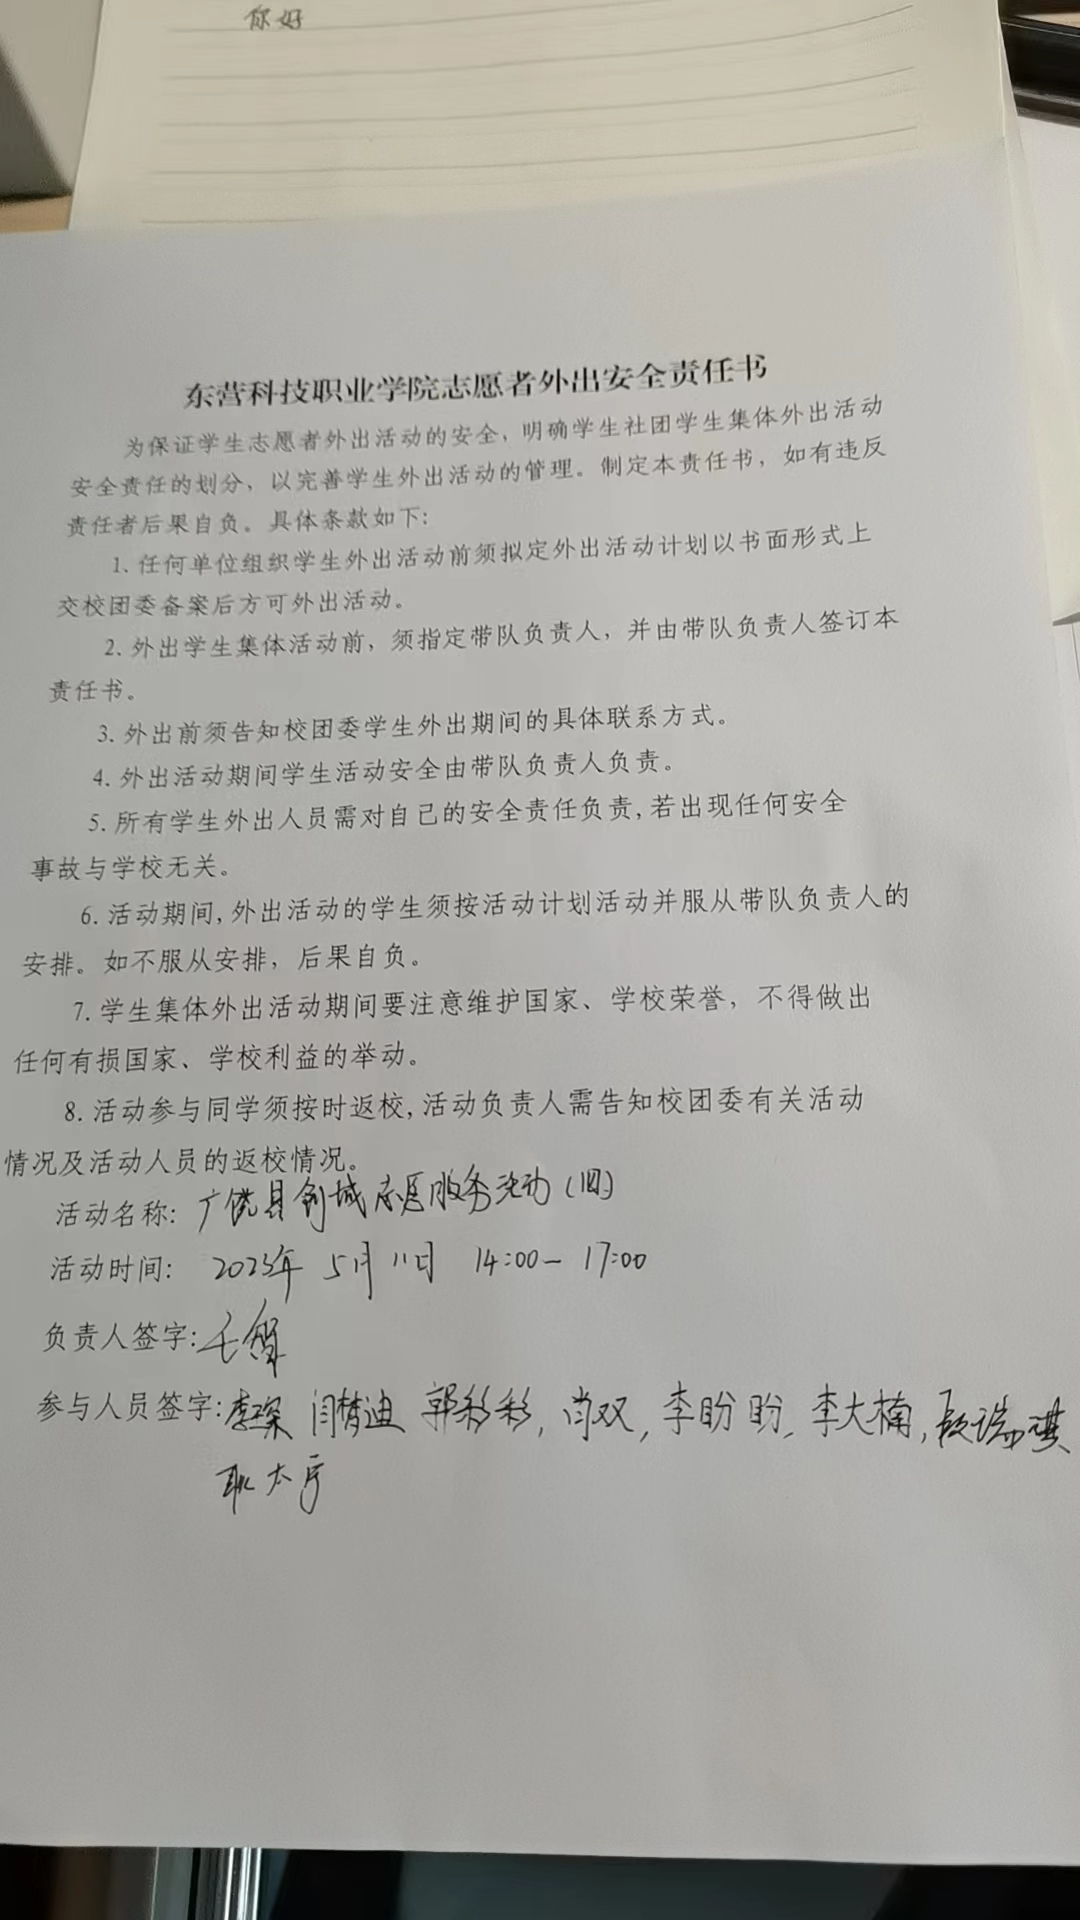 你好
东营科技职业学院志愿者外出安全责任书
为保证学生志愿者外出活动的安全，明确学生社团学生集体外出活动
安全责任的划分，以完善学生外出活动的管理。制定本责任书，如有违反
责任者后果自负。具体条款如下：
1. 任何单位组织学生外出活动前须拟定外出活动计划以书面形式上
交校团委备案后方可外出活动。
2. 外出学生集体活动前，须指定带队负责人，并由带队负责人签订本
责任书。
3. 外出前须告知校团委学生外出期间的具体联系方式。
4. 外出活动期间学生活动安全由带队负责人负责。
5. 所有学生外出人员需对自己的安全责任负责,若出现任何安全
事故与学校无关。
6. 活动期间,外出活动的学生须按活动计划活动并服从带队负责人的
安排。如不服从安排，后果自负。
7. 学生集体外出活动期间要注意维护国家、学校荣誉，不得做出
任何有损国家、学校利益的举动。
8. 活动参与同学须按时返校,活动负责人需告知校团委有关活动
情况及活动人员的返校情况。
活动名称: 广饶县创城志愿服务活动(四)
活动时间: 2023年 5月11日 14:00-17:00
负责人签字:
参与人员签字: 李琛 闫梦迪 郭彩彩, 肖双, 李盼盼, 李大楠,